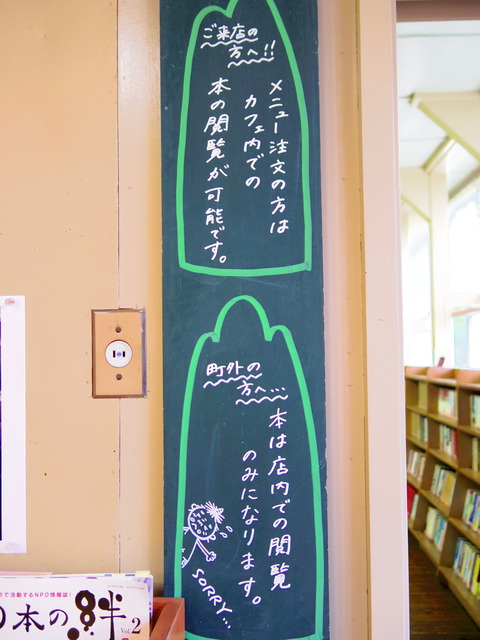 ご来店の
方へ!!
メニュー注文の方は
カフェ内での
本の閲覧が可能です。
町外の
方へ…
本は店内での閲覧
のみになります。
SORRY...
で活動するNPO情報誌!
本の絆
Vol.2